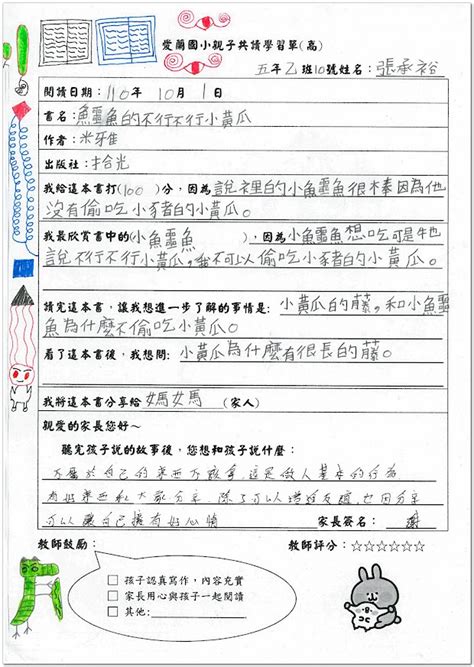 愛蘭國小親子共讀學習單(高)
五年乙班10號姓名:張承裕
閱讀日期:110年10月1日
書名:魚鱷魚的不行不行小黃瓜
作者:米牙隹
出版社:拾光
我給這本書打(100)分,因為說裡的小魚鱷魚很棒因為他
沒有偷吃小豬的小黃瓜。
我最欣賞書中的(小魚鱷魚),因為小魚鱷魚想吃可是牠
說不行不行小黃瓜,我不可以偷吃小豬的小黃瓜。
讀完這本書,讓我想進一步了解的事情是:小黃瓜的藤,和小魚鱷
魚為什麼不偷吃小黃瓜。
看了這本書後,我想問:小黃瓜為什麼有很長的藤。
我將這本書分享給媽媽(家人)
親愛的家長您好~
聽完孩子說的故事後,您想和孩子說什麼:
不屬於自己的東西不該拿這是做人基本的行為
有好東西和大家分享 除了可以增進友誼,也因分享
可以讓自己擁有好心情 家長簽名:
教師鼓勵: 教師評分:☆☆☆☆☆☆
□ 孩子認真寫作,內容充實
□ 家長用心與孩子一起閱讀
□ 其他: